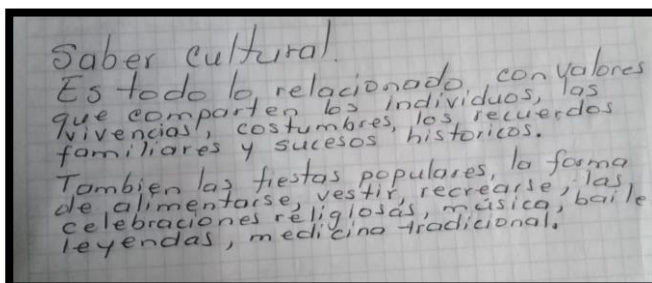 Saber cultural.
Es todo lo relacionado con valores
que comparten los individuos, las
vivencias, costumbres, los recuerdos
familiares y sucesos historicos.
Tambien las fiestas populares, la forma
de alimentarse, vestir, recrearse, las
celebraciones religiosas, música, baile
leyendas, medicina tradicional.